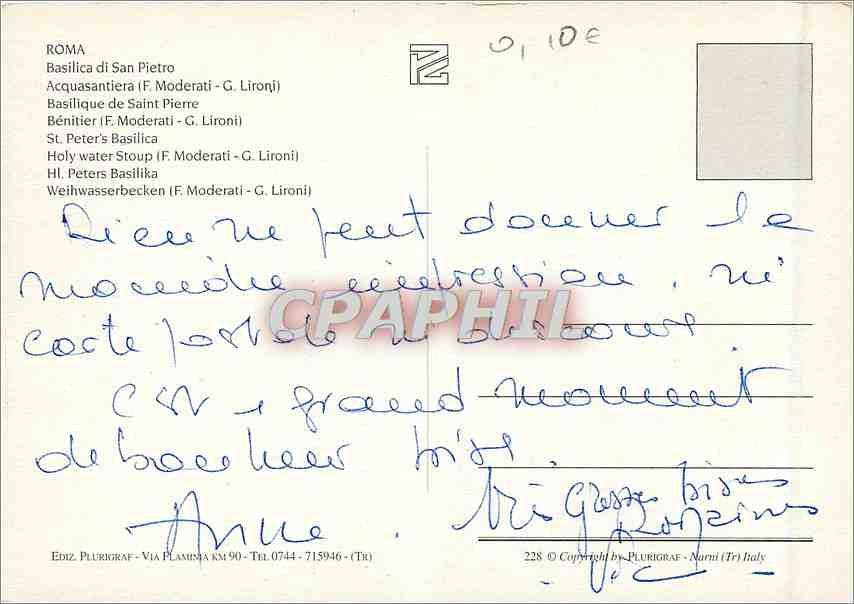 0,10€
ROMA
Basilica di San Pietro
Acquasantiera (F. Moderati - G. Lironi)
Basilique de Saint Pierre
Bénitier (F. Moderati - G. Lironi)
St. Peter's Basilica
Holy water Stoup (F. Moderati - G. Lironi)
Hl. Peters Basilika
Weihwasserbecken (F. Moderati - G. Lironi)
Rien ne peut donner la
moindre impression, ni
carte postale ni discours
C'est 1 grand moment
de bonheur bise
Anne.
Très Grosses bises
Romaines
CPAPHIL
EDIZ. PLURIGRAF - VIA FLAMINIA KM 90 - TEL 0744 - 715946 - (TR)
228 © Copyright by PLURIGRAF - Narni (Tr) Italy